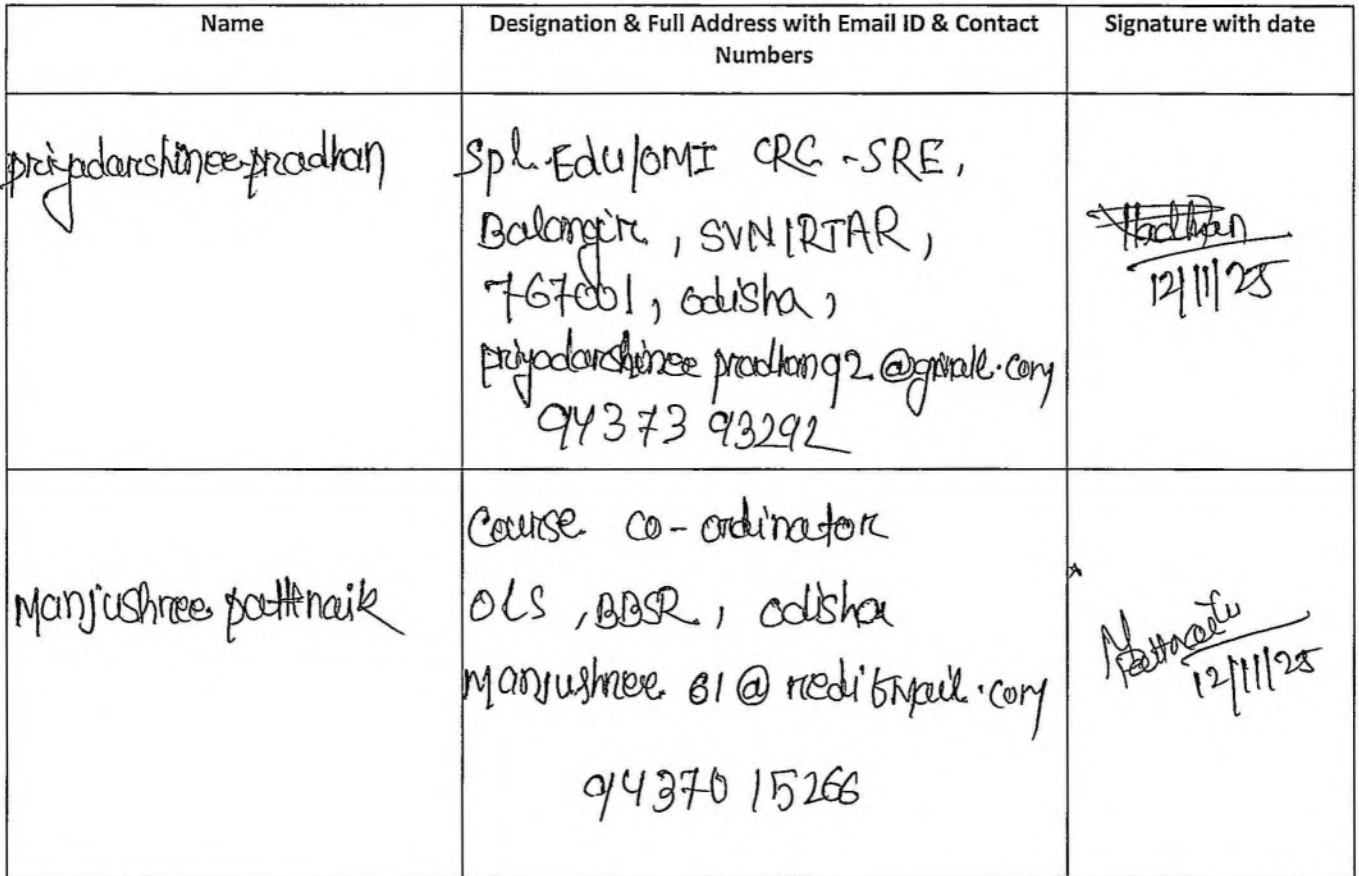 Name
Designation & Full Address with Email ID & Contact
Numbers
Signature with date
priyadarshinee pradhan
Spl. Edu/OMI CRC -SRE,
Balangir, SVNIRTAR,
767001, odisha,
priyadarshinee pradhan92@gmail.com
94373 93292
Pradhan
12/11/25
Manjushree pattnaik
Course co-ordinator
OLS, BBSR, odisha
Manjushree 61 @ rediffmail.com
94370 15266
MPattnaik
12/11/25